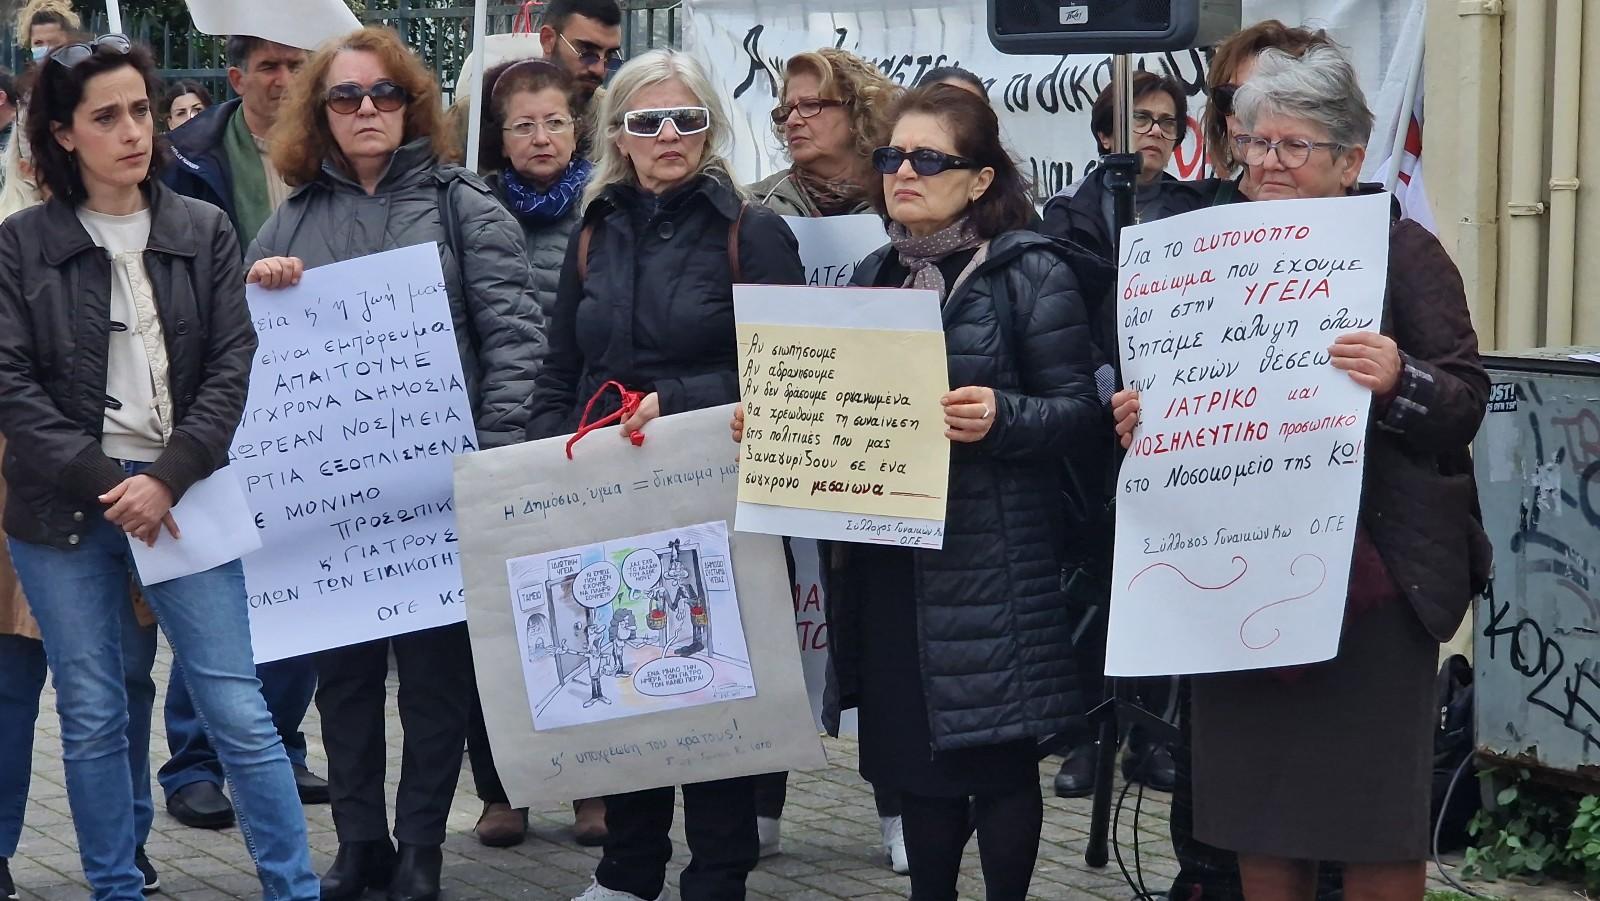 PEAVEY
το δικαίωμα
και
εία κ' η ζωή μας
είναι εμπόρευμα
ΑΠΑΙΤΟΥΜΕ
ΥΓΧΡΟΝΑ ΔΗΜΟΣΙΑ
ΔΩΡΕΑΝ ΝΟΣ/ΜΕΙΑ
ΡΤΙΑ ΕΞΟΠΛΙΣΜΕΝΑ
Ε ΜΟΝΙΜΟ
ΠΡΟΣΩΠΙΚ
κ' ΓΙΑΤΡΟΥΣ
ΟΛΩΝ ΤΩΝ ΕΙΔΙΚΟΤΗΤ
ΟΓΕ ΚΩ
Η Δημόσια υγεία = δικαίωμά μας
ΙΔΙΩΤΙΚΗ
ΥΓΕΙΑ
ΤΑΜΕΙΟ
ΚΙ ΕΜΕΙΣ
ΠΟΥ ΔΕΝ
ΕΧΟΥΜΕ
ΝΑ ΠΛΗΡΩ
ΣΟΥΜΕ;!!
ΣΑΣ ΕΧΩ
ΤΟ ΚΑΛΑΘΙ
ΤΟΥ ΑΣΘΕ
ΝΟΥΣ!
ΔΗΜΟΣΙΟ
ΣΥΣΤΗΜΑ
ΥΓΕΙΑΣ
ΕΝΑ ΜΗΛΟ ΤΗΝ
ΗΜΕΡΑ ΤΟΝ ΓΙΑΤΡΟ
ΤΟΝ ΚΑΝΕΙ ΠΕΡΑ!
κ' υποχρέωση του κράτους!
Αν σιωπήσουμε
Αν αδρανήσουμε
Αν δεν δράσουμε οργανωμένα
θα χρεωθούμε τη συναίνεση
στις πολιτικές που μας
ξαναγυρίζουν σε ένα
σύγχρονο μεσαίωνα
Σύλλογος Γυναικών Κω
Ο.Γ.Ε
Για το αυτονόητο
δικαίωμα που έχουμε
όλοι στην ΥΓΕΙΑ
ζητάμε κάλυψη όλων
των κενών θέσεων
ΙΑΤΡΙΚΟ και
ΝΟΣΗΛΕΥΤΙΚΟ προσωπικό
στο Νοσοκομείο της ΚΩ!
Σύλλογος Γυναικών Κω Ο.Γ.Ε